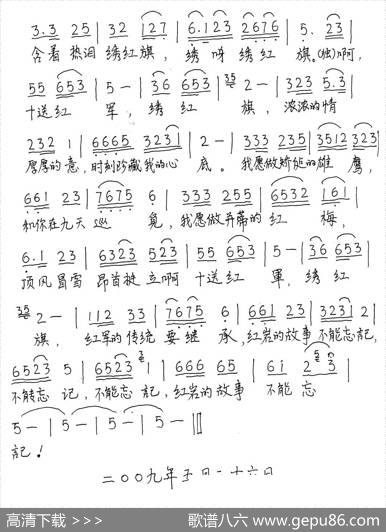 3.3 25 | 32 127 | 6.123 2676 | 5. 23 |
含着 热泪 绣红旗，绣 呀 绣 红 旗。(独)啊，
55 653 | 5 - | 36 653 | 35 2 - | 323 5.3 |
十送红 军，绣 红 旗，浓浓的情
232 1 | 6665 3231 | 2 - | 333 235 | 3512 323 |
厚厚的 意，时刻珍藏我的心 底。我愿做矫健的雄 鹰，
661 23 | 7675 6 | 333 255 | 6532 161 |
和你在九天 巡 竟，我愿做并蒂的 红 梅，
6.1 23 | 6323 523 | 55 653 | 5 - | 36 653 |
顶风冒雪 昂首挺 立啊 十送红 军，绣 红
35 2 - | 112 33 | 7675 6 | 661 23 | 3231 2 |
旗，红军的传统 要继 承，红岩的故事 不能忘記，
6523 5 | 6523 1 | 666 65 | 61 2 3 |
不能忘 记，不能忘 記，红岩的 故事 不能 忘
5 - | 5 - | 5 - | 5 - ‖
記！
二〇〇九年五月二十六日
高清下载 >>> 歌谱八六 www.gepu86.com